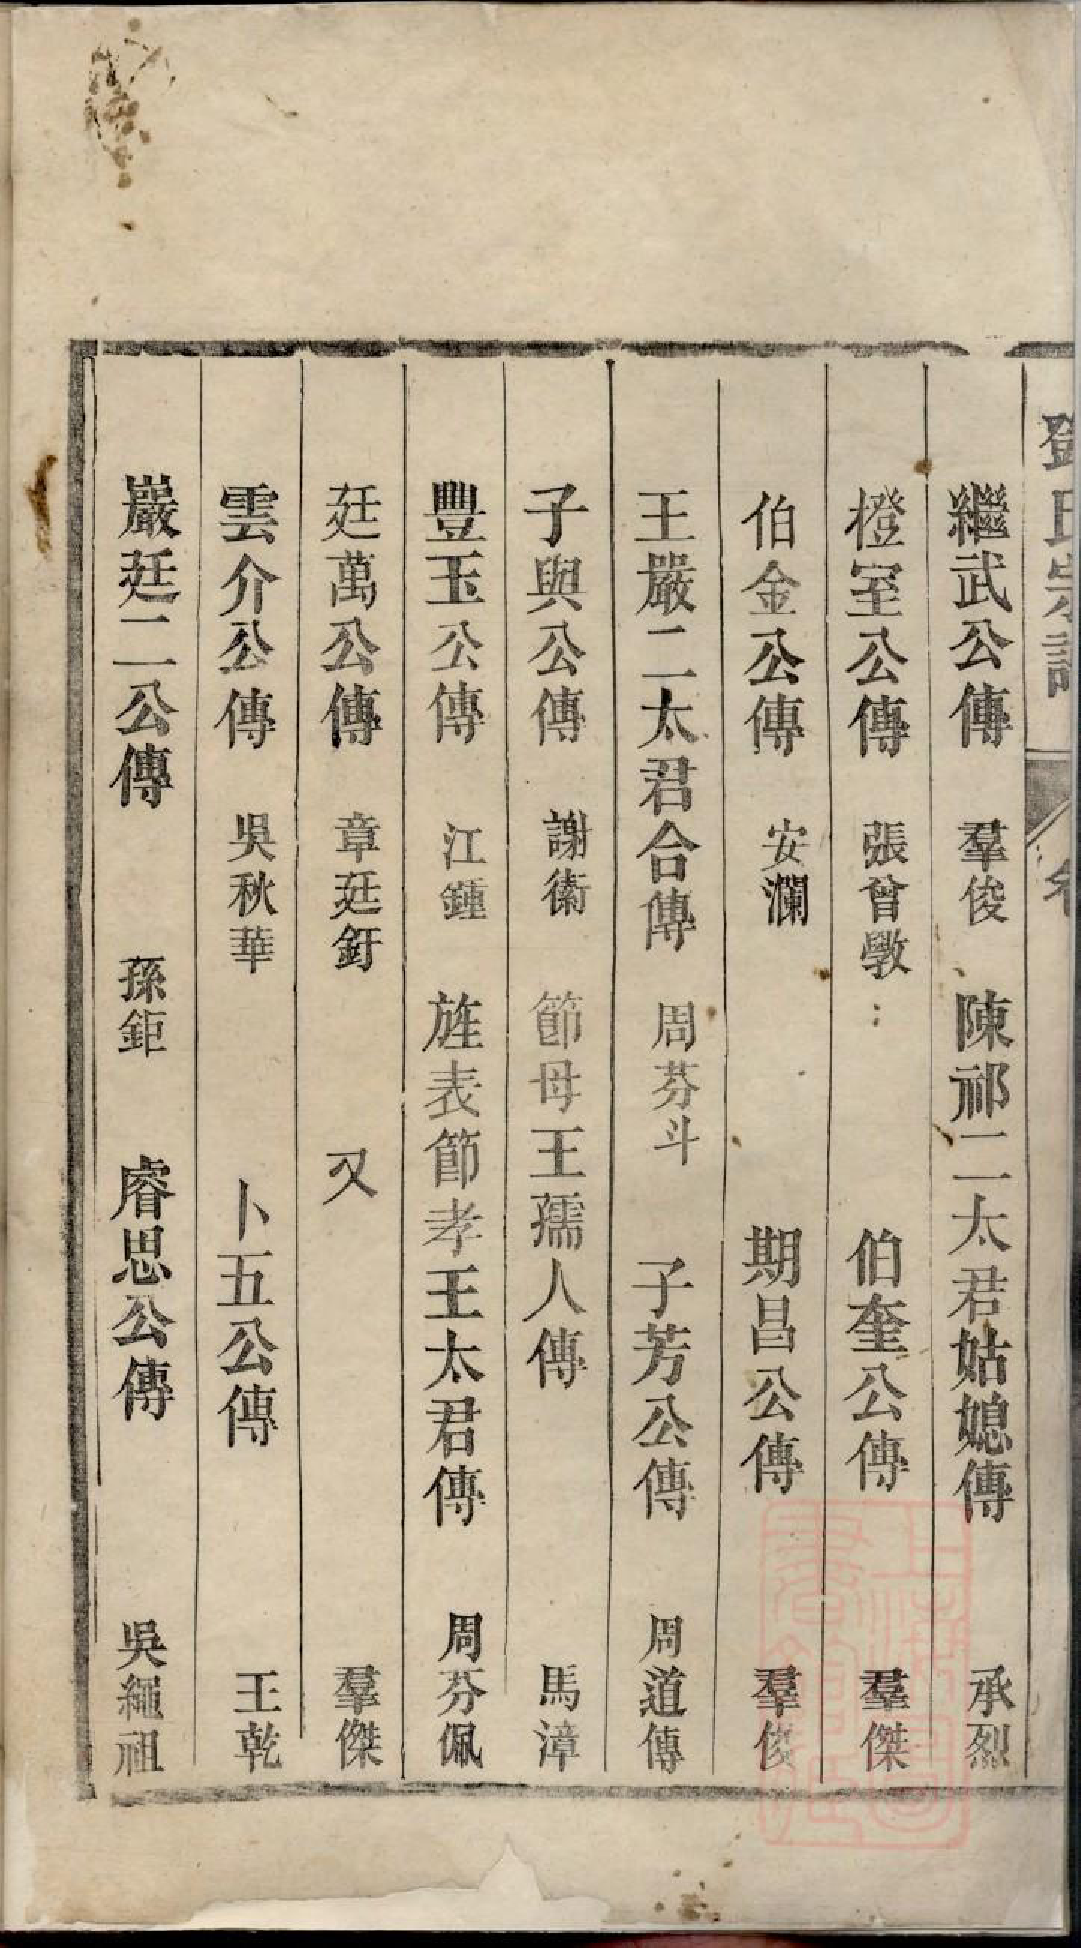 鄧氏宗譜 卷
繼武公傳 羣俊 陳祁二太君姑媳傳 承烈
橙室公傳 張曾敭 伯奎公傳 羣傑
伯金公傳 安瀾 期昌公傳 羣俊
王嚴二太君合傳 周芬斗 子芳公傳 周道傳
子與公傳 謝衛 節母王孺人傳 馬漳
豐玉公傳 江鍾 旌表節孝王太君傳 周芬佩
廷萬公傳 章廷釪 又 羣傑
雲介公傳 吳秋華 卜五公傳 王乾
巖廷二公傳 孫鉅 睿思公傳 吳繩祖